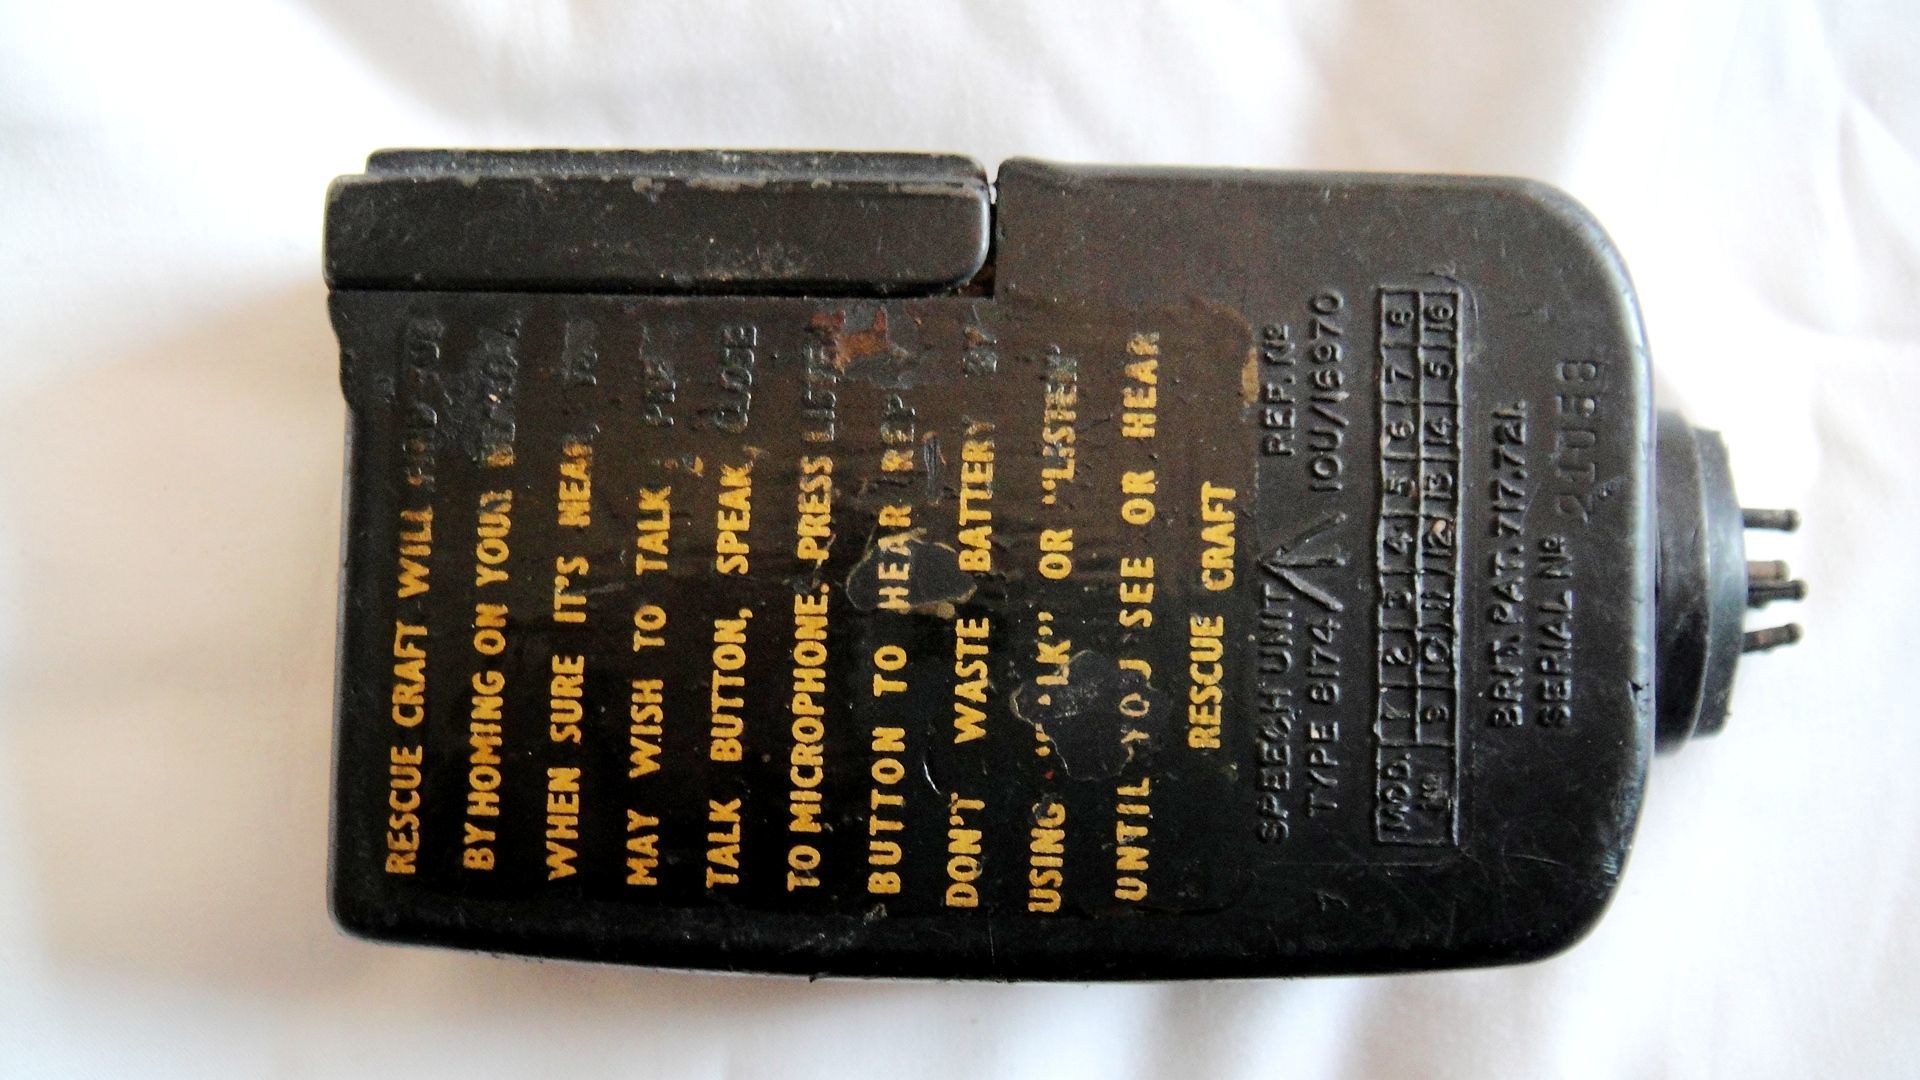 RESCUE CRAFT WILL FIND YOU
BY HOMING ON YOUR BEACON.
WHEN SURE IT'S NEAR, YOU
MAY WISH TO TALK, PRESS
TALK BUTTON, SPEAK, CLOSE
TO MICROPHONE. PRESS LISTEN
BUTTON TO HEAR REPLY
DON'T WASTE BATTERY BY
USING "TALK" OR "LISTEN"
UNTIL YOU SEE OR HEAR
RESCUE CRAFT
SPEECH UNIT REF. Nº
TYPE B174 10U/16970
MOD. 1 2 3 4 5 6 7 8
Nº 9 10 11 12 13 14 15 16
BRIT. PAT. 717.721.
SERIAL Nº